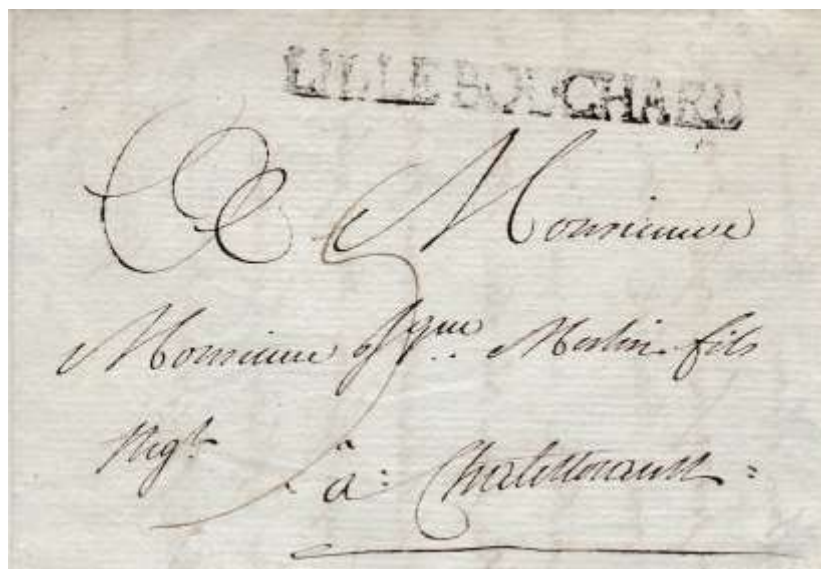 LILLE BOUCHARD
A Monsieur
Monsieur Merlin fils
Negt
à : Chatellerault :